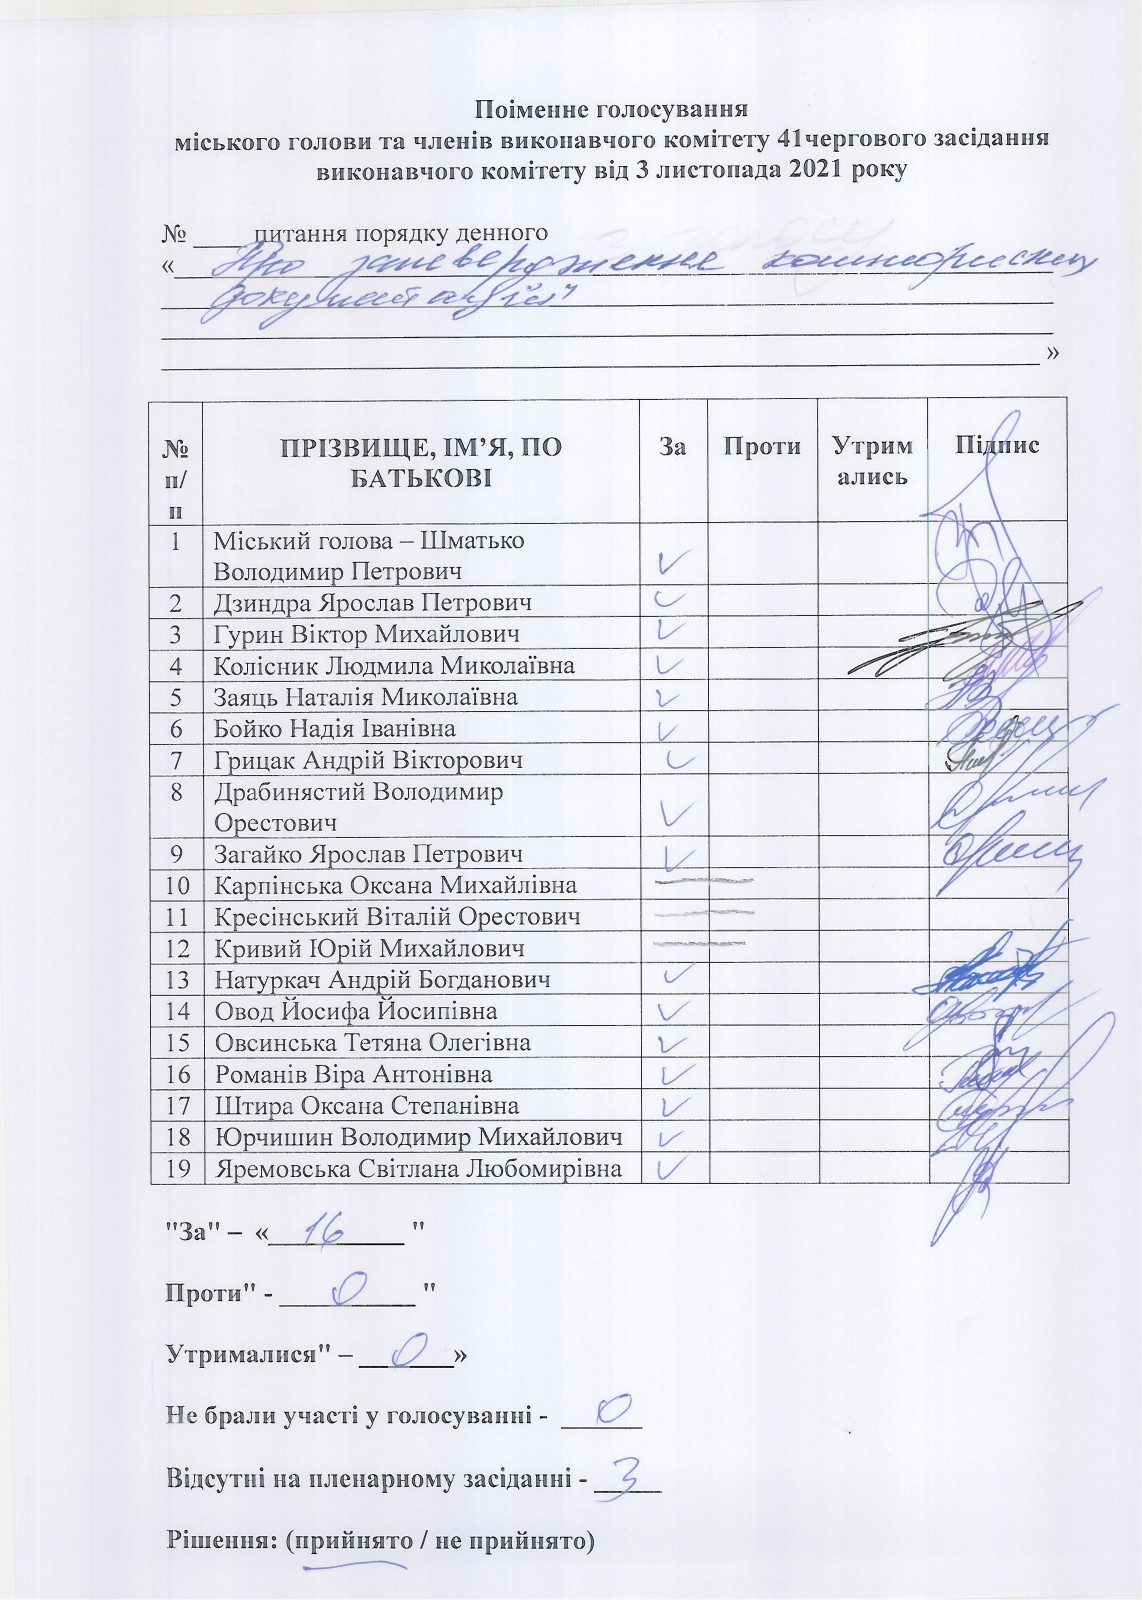 Поіменне голосування
міського голови та членів виконавчого комітету 41чергового засідання
виконавчого комітету від 3 листопада 2021 року
№ ____ питання порядку денного
« Про затвердження кошторисних
документацій"
»
№ п/п ПРІЗВИЩЕ, ІМ’Я, ПО БАТЬКОВІ За Проти Утрим ались Підпис
1 Міський голова – Шматько
Володимир Петрович
2 Дзиндра Ярослав Петрович
3 Гурин Віктор Михайлович
4 Колісник Людмила Миколаївна
5 Заяць Наталія Миколаївна
6 Бойко Надія Іванівна
7 Грицак Андрій Вікторович
8 Драбинястий Володимир
Орестович
9 Загайко Ярослав Петрович
10 Карпінська Оксана Михайлівна
11 Кресінський Віталій Орестович
12 Кривий Юрій Михайлович
13 Натуркач Андрій Богданович
14 Овод Йосифа Йосипівна
15 Овсинська Тетяна Олегівна
16 Романів Віра Антонівна
17 Штира Оксана Степанівна
18 Юрчишин Володимир Михайлович
19 Яремовська Світлана Любомирівна
"За" – « 16 "
Проти" - 0 "
Утрималися" – 0 »
Не брали участі у голосуванні - 0
Відсутні на пленарному засіданні - 3
Рішення: (прийнято / не прийнято)